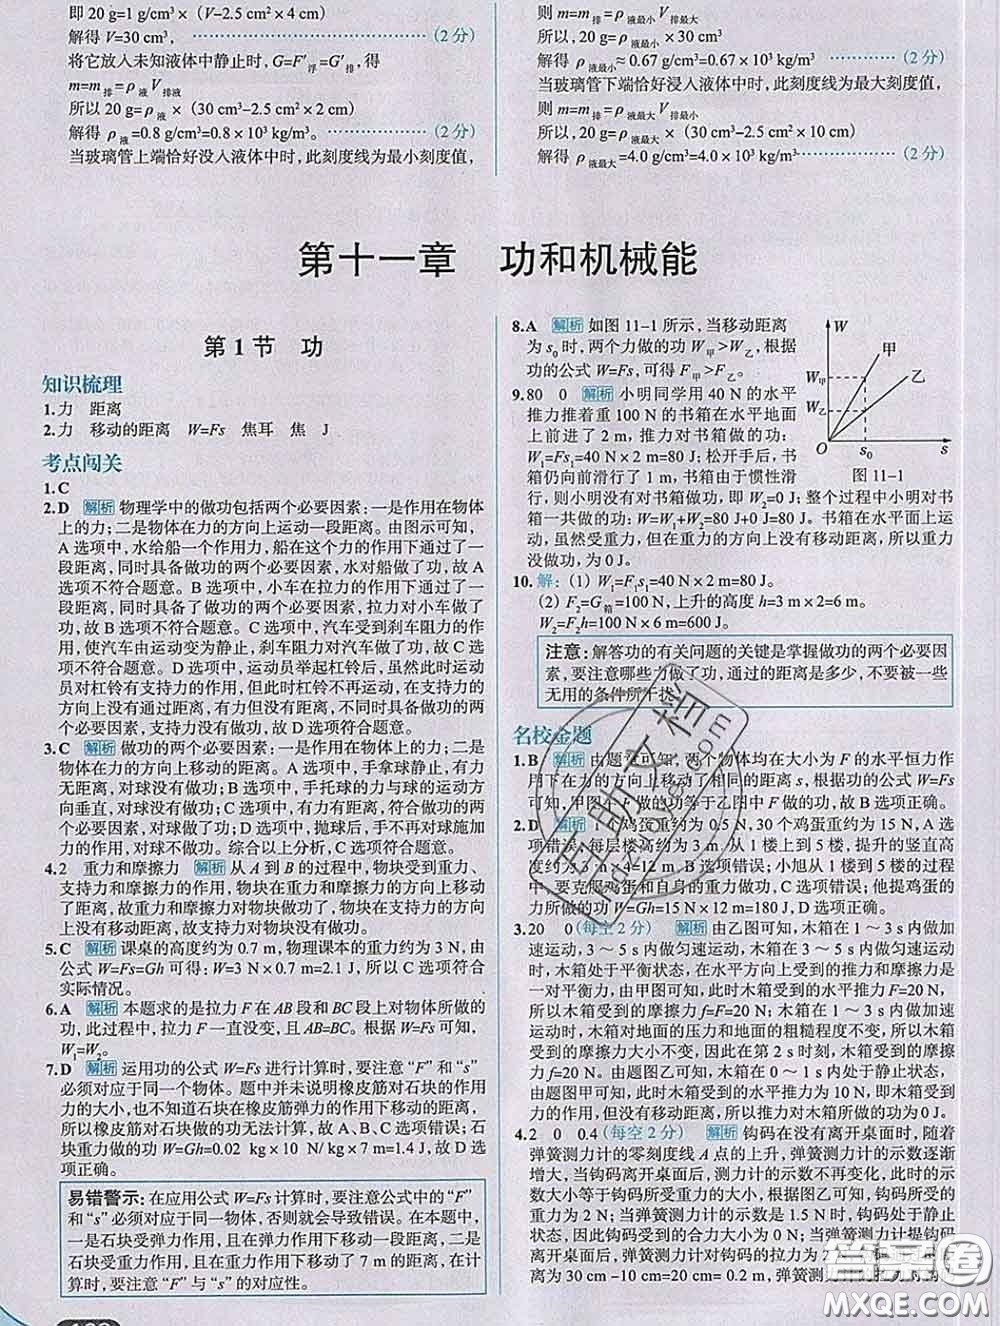 即 20 g=1 g/cm³×(V-2.5 cm²×4 cm)
解得 V=30 cm³, ……(2 分)
将它放入未知液体中静止时, G=F′浮=G′排, 得
m=m排=ρ液V排液
所以 20 g=ρ液×(30 cm³-2.5 cm²×2 cm)
解得 ρ液=0.8 g/cm³=0.8×10³ kg/m³。……(2 分)
当玻璃管上端恰好没入液体中时,此刻度线为最小刻度值,
则 m=m排=ρ液最小V排最小
所以, 20 g=ρ液最小×30 cm³
解得 ρ液最小≈0.67 g/cm³=0.67×10³ kg/m³ ……(2 分)
当玻璃管下端恰好浸入液体中时,此刻度线为最大刻度值,
则 m=m排=ρ液最大V排最大
所以, 20 g=ρ液最大×(30 cm³-2.5 cm²×10 cm)
解得 ρ液最大=4.0 g/cm³=4.0×10³ kg/m³……(2 分)
第十一章 功和机械能
第 1 节 功
知识梳理
1.力 距离
2.力 移动的距离 W=Fs 焦耳 焦 J
考点闯关
1.C
2.D 解析 物理学中的做功包括两个必要因素:一是作用在物体
上的力;二是物体在力的方向上运动一段距离。由图示可知,
A 选项中,水给船一个作用力,船在这个力的作用下通过了一
段距离,同时具备做功的两个必要因素,水对船做了功,故 A
选项不符合题意。B 选项中,小车在拉力的作用下通过了一
段距离,同时具备了做功的两个必要因素,拉力对小车做了
功,故 B 选项不符合题意。C 选项中,汽车受到刹车阻力的作
用,使汽车由运动变为静止,刹车阻力对汽车做了功,故 C 选
项不符合题意。D 选项中,运动员举起杠铃后,虽然此时运动
员对杠铃有支持力的作用,但此时杠铃不再运动,在支持力的
方向上没有通过距离,有力但没有距离,不同时具备做功的两
个必要因素,支持力没有做功,故 D 选项符合题意。
3.C 解析 做功的两个必要因素:一是作用在物体上的力;二是
物体在力的方向上移动的距离。A 选项中,手拿球静止,有力
无距离,对球没有做功;B 选项中,手托球的力与球的运动方
向垂直,对球没有功;C 选项中,有力有距离,并且力的方向与
距离同方向,对球做了功;D 选项中,抛球后,手不再对球施加
力的作用,对球不做功。综合以上分析,C 选项符合题意。
4.2 重力和摩擦力 解析 从 A 到 B 的过程中,物块受到重力、
支持力和摩擦力的作用,物块在重力和摩擦力的方向上移动
了距离,故重力和摩擦力对物块做功了;在支持力的方向上
没有移动距离,故支持力对物块没有做功。
5.C 解析 课桌的高度约为 0.7 m,物理课本的重力约为 3 N,由
公式 W=Fs=Gh 可得:W=3 N×0.7 m=2.1 J,所以 C 选项符合
实际情况。
6.A 解析 本题求的是拉力 F 在 AB 段和 BC 段上对物体所做的
功,此过程中,拉力 F 一直没变,且 AB=BC。根据 W=Fs 可知,
W₁=W₂。
7.D 解析 运用功的公式 W=Fs 进行计算时,要注意“F”和“s”
必须对应于同一个物体。题中并未说明橡皮筋对石块的作用
力的大小,也不知道石块在橡皮筋弹力的作用下移动的距离,
所以橡皮筋对石块做的功无法计算,故 A、B、C 选项错误;石
块重力做的功 W=Gh=0.02 kg×10 N/ kg×7 m=1.4 J,故 D 选
项正确。
易错警示:在应用公式 W=Fs 计算时,要注意公式中的“F”
和“s”必须对应于同一物体,否则就会导致错误。在本题中,
一是石块受弹力作用,且在弹力作用下移动了距离,二是
石块受重力作用,且在重力作用下移动了 7 m 的距离,在计
算时,要注意“F”与“s”的对应性。
8.A 解析 如图 11-1 所示,当移动距离
为 s₀ 时,两个力做的功 W甲>W乙,根据
功的公式 W=Fs,可得 F甲>F乙。
W
甲
乙
W甲
W乙
O
s₀
s
图 11-1
9.80 0 解析 小明同学用 40 N 的水平
推力推着重 100 N 的书箱在水平地面
上前进了 2 m,推力对书箱做的功:
W₁=Fs₁=40 N×2 m=80 J;松开手后,书
箱仍向前滑行了 1 m,书箱由于惯性滑
行,则小明没有对书箱做功,即 W₂=0 J;整个过程中小明对书
箱一共做的功:W=W₁+W₂=80 J+0 J=80 J。书箱在水平面上运
动,虽然受重力,但在重力的方向上没有移动距离,所以重力
没做功,为 0 J。
10.解:(1) W₁=F₁s₁=40 N×2 m=80 J。
(2) F₂=G箱=100 N,上升的高度 h=3 m×2=6 m。
W₂=F₂h=100 N×6 m=600 J。
注意:解答功的有关问题的关键是掌握做功的两个必要因
素,要注意哪些力做了功,通过的距离是多少,不要被一些
无用的条件所干扰。
名校金题
1.B 解析 由题可知,两个物体均在大小为 F 的水平恒力作
用下在力的方向上移动了相同的距离 s,根据功的公式 W=Fs
可知,甲图中 F 做的功等于乙图中 F 做的功,故 B 选项正确。
2.D 解析 1 个鸡蛋重约为 0.5 N,30 个鸡蛋重约为 15 N,A 选
项错误;每层楼高约为 3 m,从 1 楼上到 5 楼,提升的竖直高
度约为 3 m×4=12 m,B 选项错误;小旭从 1 楼到 5 楼的过程
中,要克服鸡蛋和自身的重力做功,C 选项错误;他提鸡蛋的
力所做的功 W=Gh=15 N×12 m=180 J,D 选项正确。
3.20 0(每空 2 分) 解析 由乙图可知,木箱在 1～3 s 内做加
速运动,3～5 s 内做匀速运动,木箱在 3～5 s 内做匀速运动
时,木箱处于平衡状态,在水平方向上受到的推力和摩擦力是
一对平衡力,由丙图可知,此时木箱受到的推力 F=20 N,
所以木箱受到的摩擦力 f=F=20 N;木箱在 1～3 s 内做加速
运动时,木箱对地面的压力和地面的粗糙程度不变,所以木箱
受到的摩擦力大小不变,因此在第 2 s 时刻,木箱受到的摩擦
力 f=20 N。由题图乙可知,木箱在 0～1 s 内处于静止状态,
由题图甲可知,此时木箱受到的水平推力为 10 N,即木箱受
到推力但没有移动距离,所以推力对木箱所做的功为 0 J。
4.2 0 0.4(每空 2 分) 解析 钩码在没有离开桌面时,随着
弹簧测力计的零刻度线 A 点的上升,弹簧测力计的示数逐渐
增大,当钩码离开桌面后,测力计的示数不再变化,此时的示
数大小等于钩码受重力的大小,根据图乙可知,钩码所受的重
力为 2 N;当弹簧测力计的示数是 1.5 N 时,钩码处于静止状
态,因此钩码受到的合力大小为 0 N;当弹簧测力计提钩码
离开桌面后,弹簧测力计对钩码的拉力为 2
距离为 30 cm -10 cm=20 cm= 0.2 m,弹簧测力计
答案圈
MXQE.COM